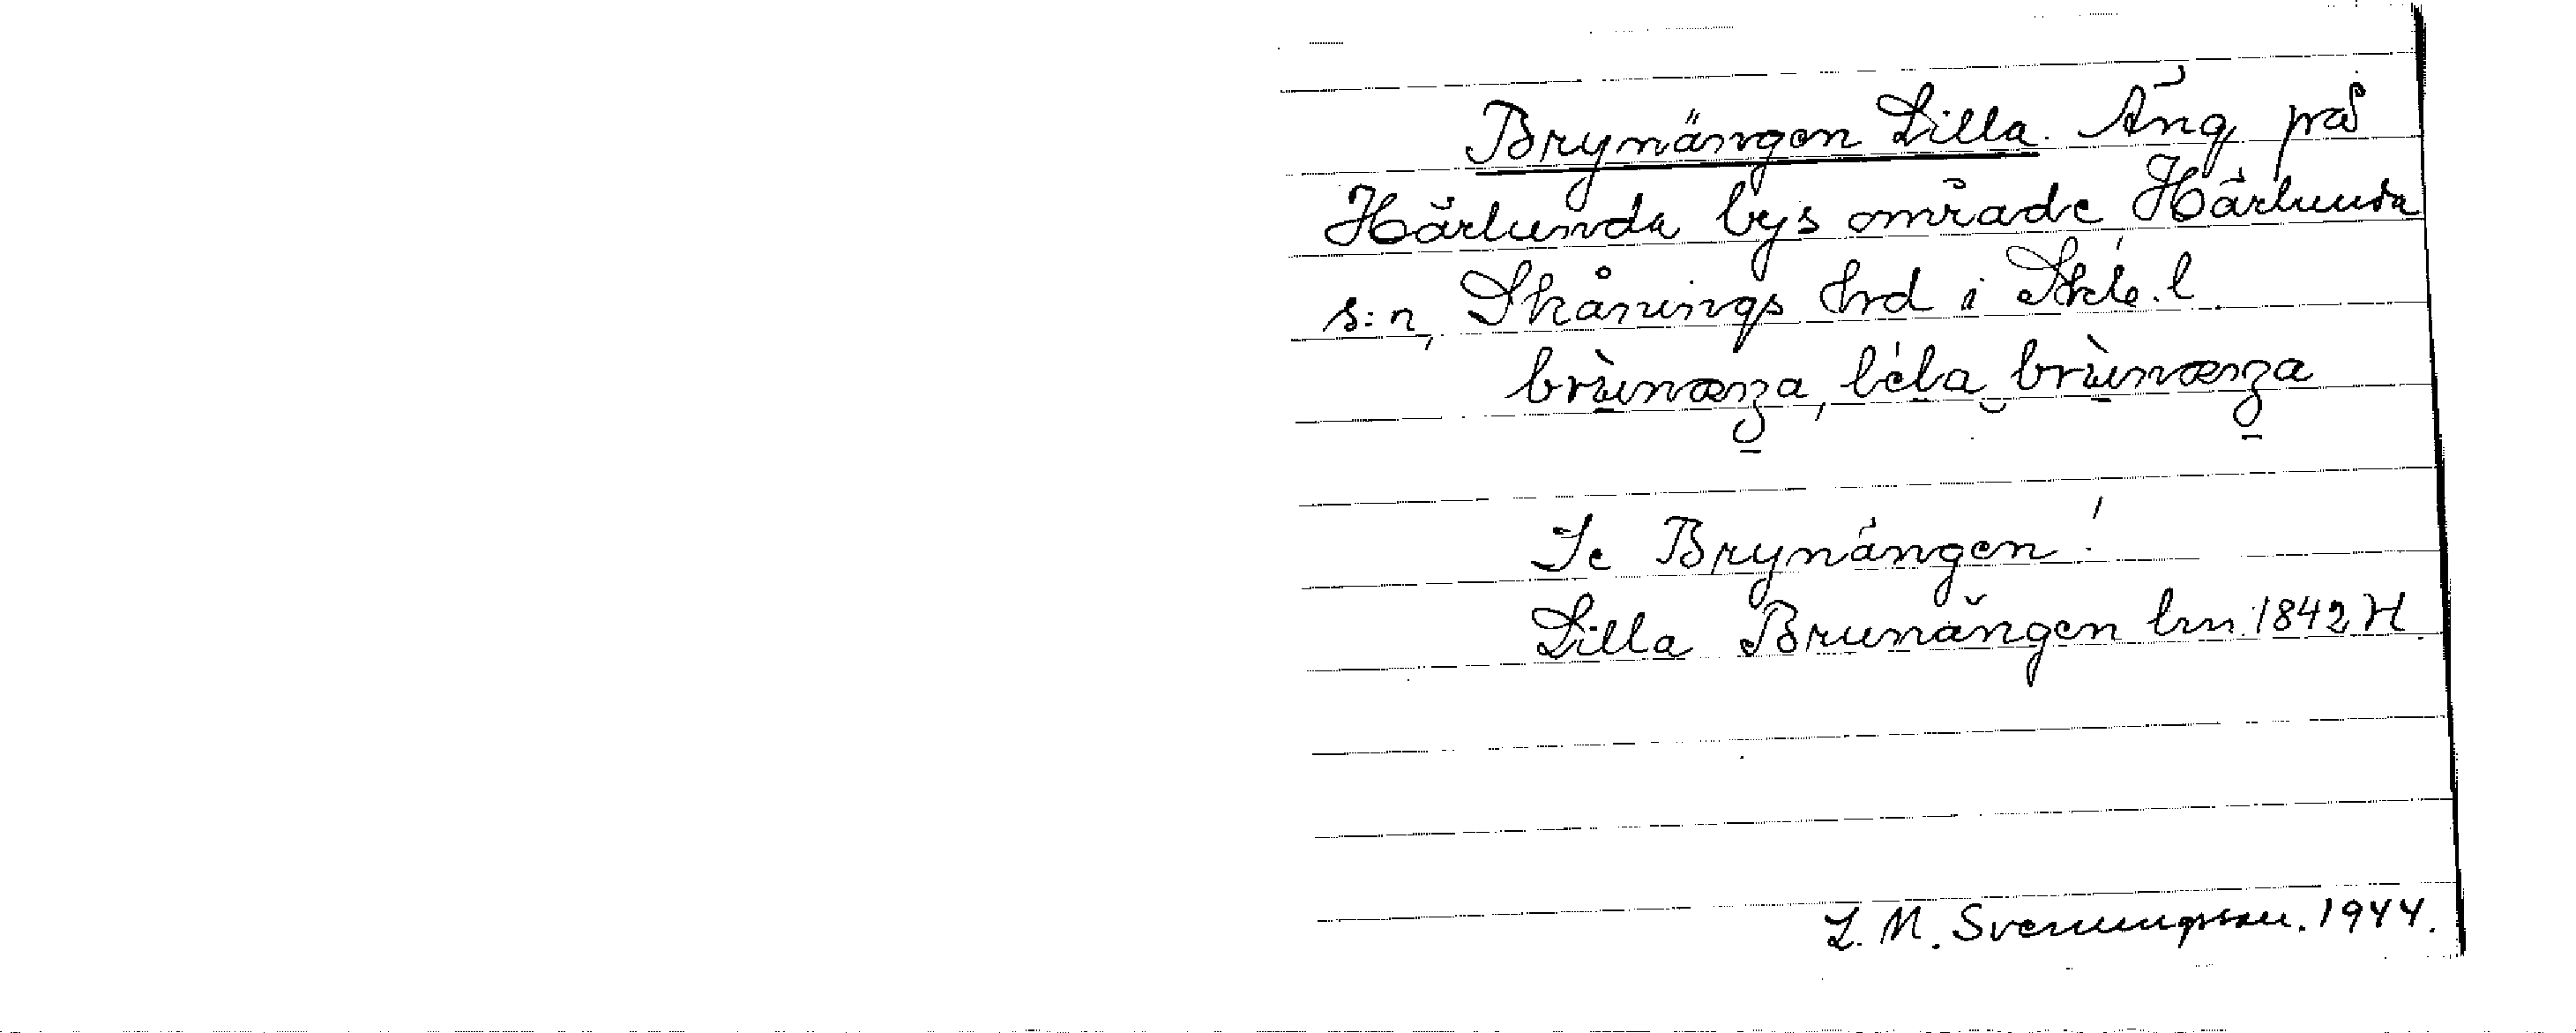 Brynängen Lilla. Äng på
Härlunda bys område, Härlunda
s:n, Skånings hrd i Skb. l.
brùnænga, lela brùnænga
Se Brynängen!
Lilla Brunängen lm 1842 H.
L. M. Svenungsson. 1944.